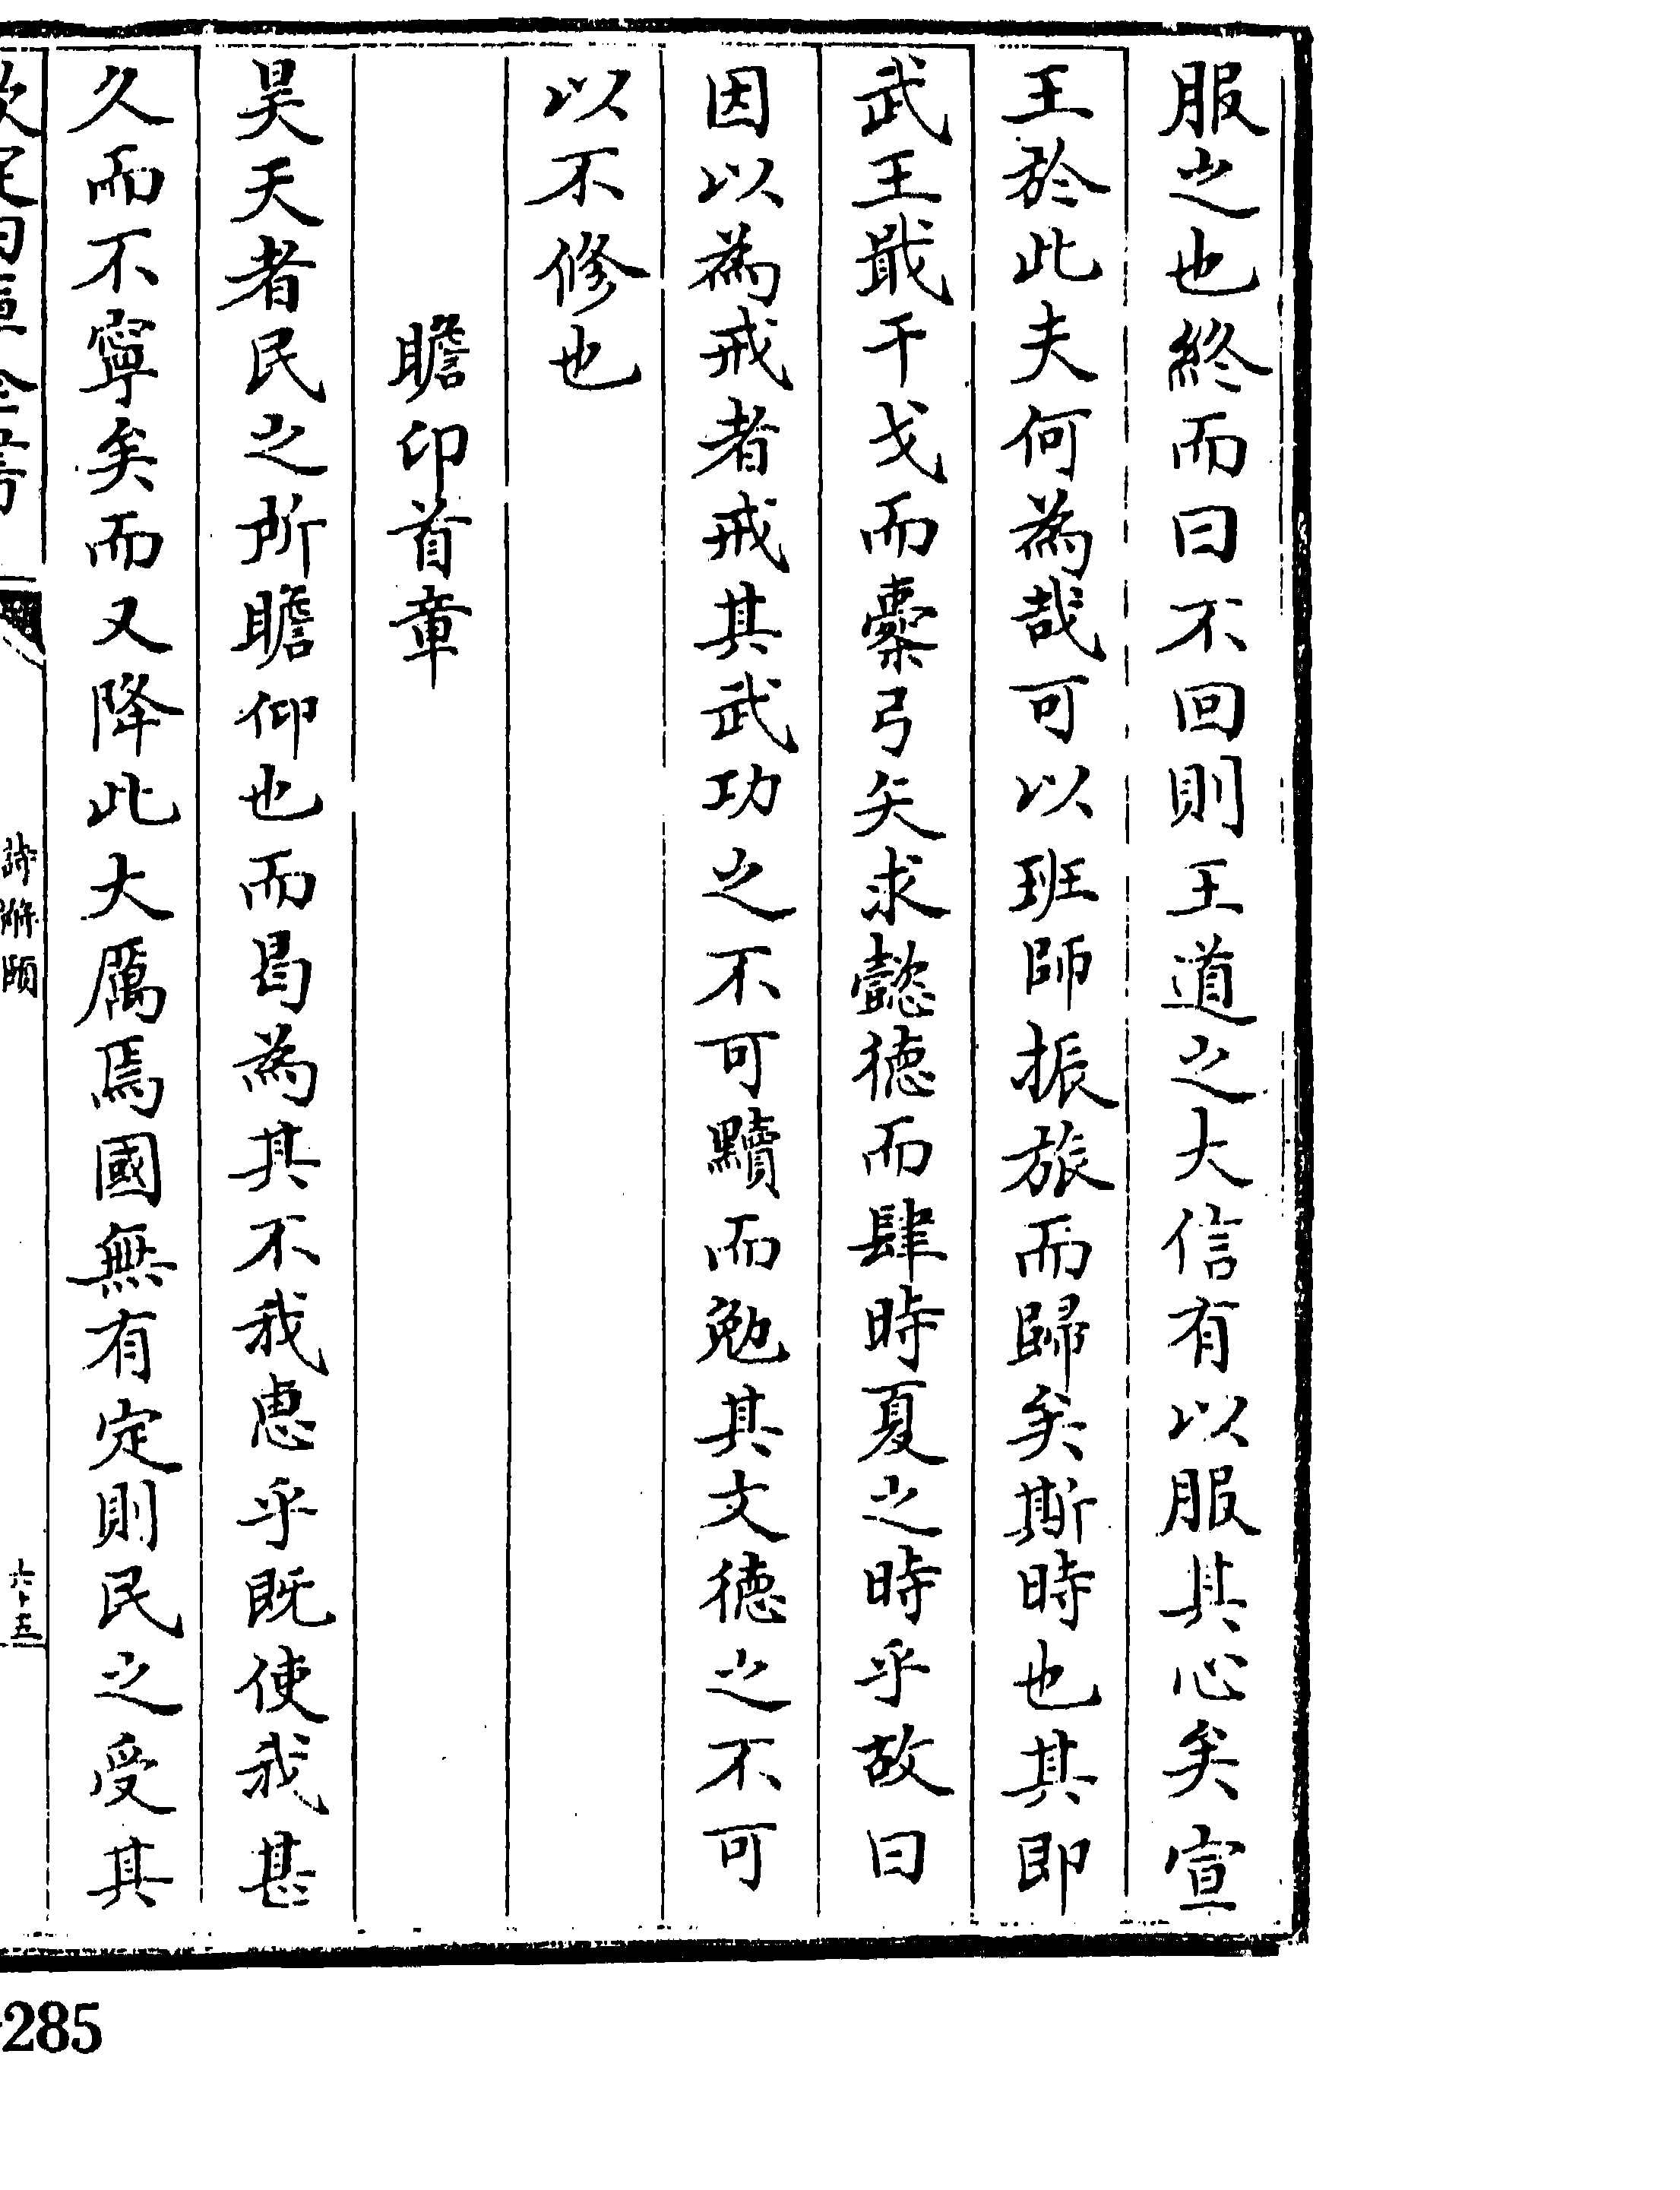 服之也終而曰不回則王道之大信有以服其心矣宣
王於此夫何為哉可以班師振旅而歸矣斯時也其即
武王戢干戈而櫜弓矢求懿德而肆時夏之時乎故曰
因以為戒者戒其武功之不可黷而勉其文德之不可
以不修也
瞻卬首章
昊天者民之所瞻仰也而曷為其不我惠乎既使我甚
久而不寧矣而又降此大厲焉國無有定則民之受其
詩解頤
六十五
285